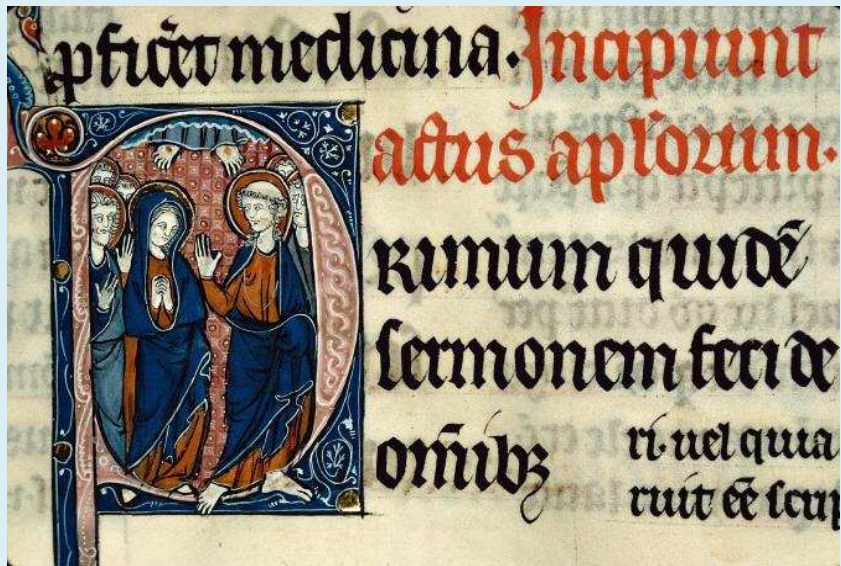 ꝓficĕt medicina. Incipiunt
actus apl'orum.
Primum quidē
sermonem feci de
om̄ibꝫ
ri. uel quia
ruit eē scrip